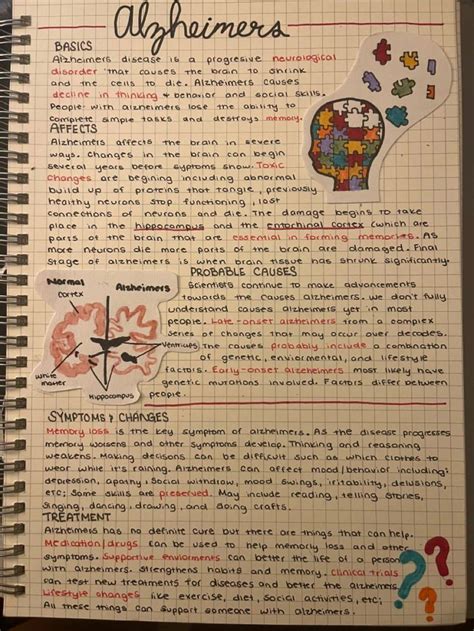 Alzheimers
BASICS
Alzheimers disease is a progresive neurological
disorder that causes the brain to shrink
and the cells to die. Alzheimers causes
decline in thinking & behavior and social skills.
People with alzheimers lose the ability to
complete simple tasks and destroys memory.
AFFECTS
Alzheimers affects the brain in severe
ways. Changes in the brain can begin
several years before syptoms show. Toxic
changes are begining including abnormal
build up of proteins that tangle, previously
healthy neurons stop functioning, lost
connections of neurons and die. The damage begins to take
place in the hippocampus and the entorhinal cortex (which are
parts of the brain that are essential in forming memories. As
more neurons die more parts of the brain are damaged. Final
stage of alzheimers is when brain tissue has shrunk significantly.
PROBABLE CAUSES
Scientists continue to make advancements
towards the causes alzheimers. we don't fully
understand causes alzheimers yet in most
people. Late-onset alzheimers from a complex
series of changes that may occur over decades.
The causes probably include a combination
of genetic, enviormental, and lifestyle
factors. Early-onset alzeimers most likely have
genetic mutations involved. Factors differ between
people.
Normal
Alzheimers
cortex
Ventricles
White
matter
Hippocampus
SYMPTOMS & CHANGES
Memory loss is the key symptom of alzheimers. As the disease progresses
memory worsens and other symptoms develop. Thinking and reasoning
weakens. Making decisons can be difficult such as which clothes to
wear while it's raining. Alzheimers can affect mood/behavior including:
depression, apathy, social withdrawl, mood swings, irritability, delusions,
etc; Some skills are preserved. May include reading, telling stories,
singing, dancing, drawing, and doing crafts.
TREATMENT
Alzheimers has no definite cure but there are things that can help.
Medication/drugs can be used to help memory loss and other
symptoms. Supportive enviorments can better the life of a person
with alzheimers. strengthens habits and memory. Clinical trials
can test new treatments for diseases and better the alzheimers
Lifestyle changes like exercise, diet, social activities, etc;
All these things can support someone with alzheimers.
???